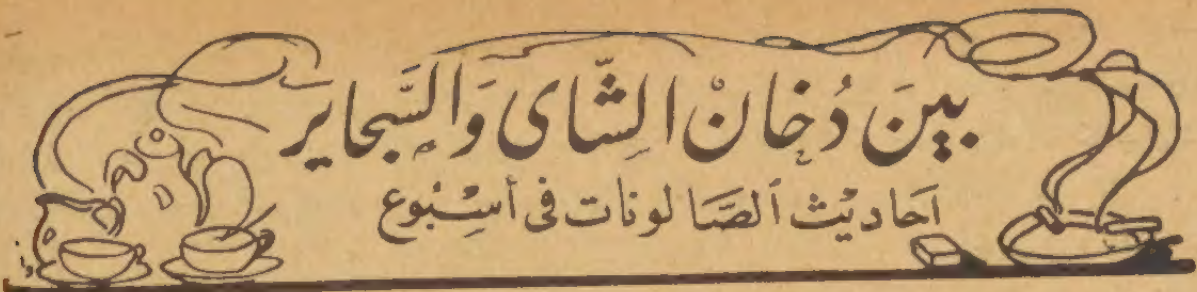 بينَ دُخانْ الشّاى وَالسَّجاير
احاديْث الصَّالونات فى أسْبُوع